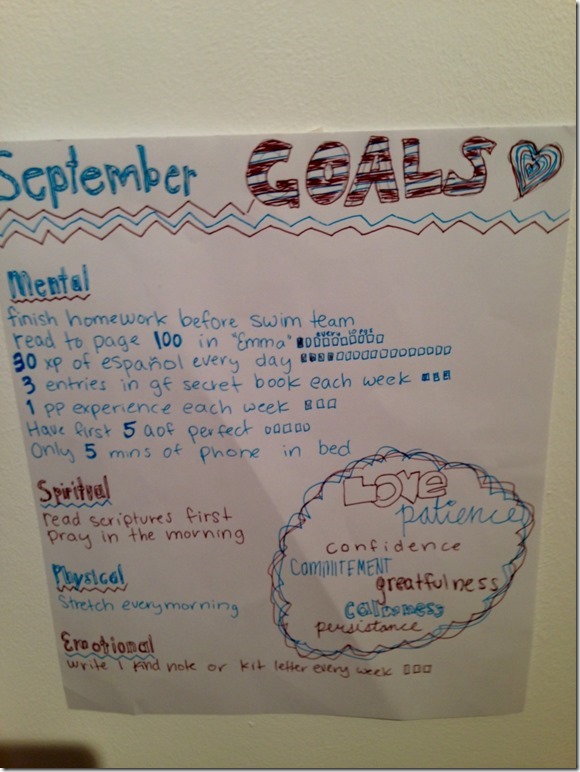 September GOALS
Mental
finish homework before swim team
every 10 pgs
read to page 100 in "Emma"
30 xp of español every day
3 entries in gf secret book each week
1 pp experience each week
Have first 5 aof perfect
Only 5 mins of phone in bed
Spiritual
read scriptures first
pray in the morning
Physical
Stretch everymorning
Emotional
write 1 kind note or kit letter every week
LOVE
patience
confidence
COMMITEMENT
greatfulness
calmness
persistance